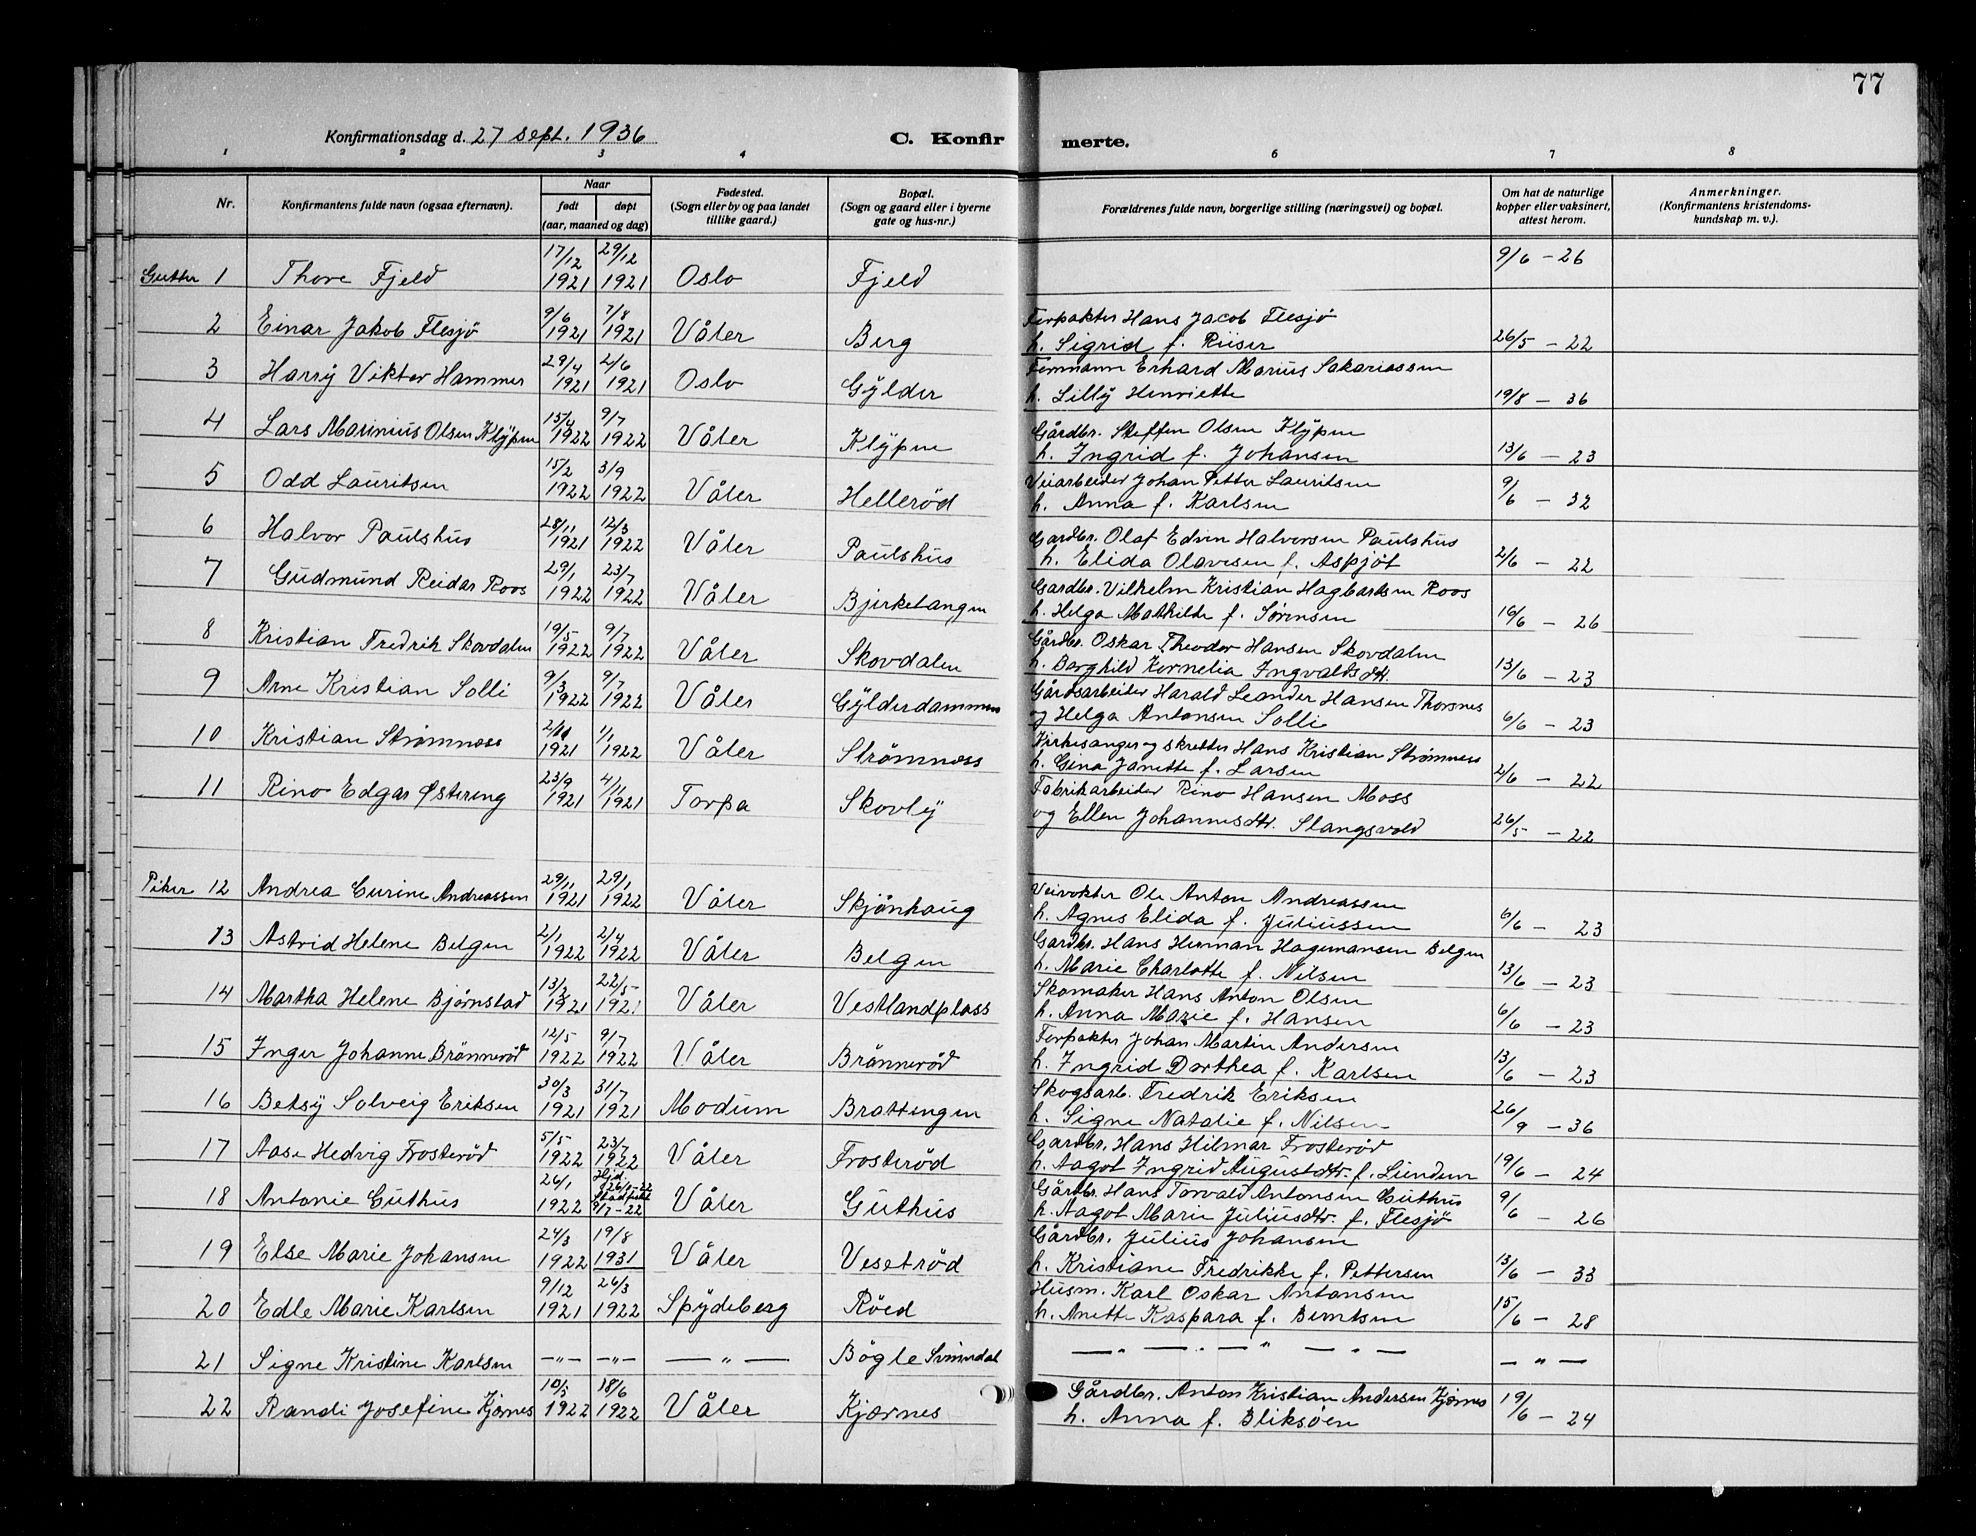 77
Konfirmationsdag d. 27 sept. 1936
C. Konfir merte.
1 2 3 4 6 7 8
Nr.
Konfirmantens fulde navn (ogsaa efternavn).
Naar
født døpt
(aar, maaned og dag)
Fødested.
(Sogn eller by og paa landet
tillike gaard.)
Bopæl.
(Sogn og gaard eller i byerne
gate og hus-nr.)
Forældrenes fulde navn, borgerlige stilling (næringsvei) og bopæl.
Om hat de naturlige
kopper eller vaksinert,
attest herom.
Anmerkninger.
(Konfirmantens kristendoms-
kundskap m. v.).
Gutter 1 Thore Fjeld 17/12 1921 29/12 1921 Oslo Fjeld 9/6 - 26
2 Einar Jakob Flesjö 9/6 1921 7/8 1921 Våler Berg Forpakter Hans Jacob Flesjö
h. Sigrid f. Riiser 26/5 - 22
3 Harry Viktor Hammer 29/4 1921 2/6 1921 Oslo Gÿlder Erhard Marius Sakariassen
h. Lilly Henriette 19/8 - 36
4 Lars Marinius Olsen Klÿpen 15/4 1922 9/7 1922 Våler Klÿpen Gårdbr. Steffen Olsen Klÿpen
h. Ingrid f. Johansen 13/6 - 23
5 Odd Lauritsen 15/2 1922 3/9 1922 Våler Helleröd Veiarbeider Johan Petter Lauritsen
h. Anna f. Karlsen 9/6 - 32
6 Halvor Paulshus 28/11 1921 12/3 1922 Våler Paulshus Gardbr. Olaf Edvin Halvorsen Paulshus
h. Elida Olavesen f. Aspjöt 2/6 - 22
7 Gudmund Reidar Roos 29/1 1922 23/7 1922 Våler Bjerketangen Gardbr. Vilhelm Kristian Hagbartsen Roos
h. Helga Mathilde f. Sörensen 16/6 - 26
8 Kristian Fredrik Skovdalen 19/5 1922 9/7 1922 Våler Skovdalen Gårdbr. Oskar Theodor Hansen Skovdalen
h. Borghild Kornelia Ingvaldsdtr. 13/6 - 23
9 Arne Kristian Solli 9/3 1922 9/7 1922 Våler Gÿlderdammen Gårdsarbeider Harald Leander Hansen Thorsnes
og Helga Antonsen Solli 6/6 - 23
10 Kristian Strömnæss 1921 1/1 1922 Våler Strömnæss Kirkesanger og Hans Kristian Strömnæss
h. Gina Janette f. Larsen 2/6 - 22
11 Rino Edgar Østereng 23/9 1921 4/11 1921 Torpa Skovlÿ Fabrikarbeider Rino Hansen Moss
og Ellen Johannesdtr. Slangsvold 26/5 - 22
Piker 12 Andrea Curine Andreassen 29/11 1921 29/1 1922 Våler Skjönhaug Veivokter Ole Anton Andreassen
h. Agnes Elida f. Juliussen 6/6 - 23
13 Astrid Helene Belgen 2/1 1922 2/4 1922 Våler Belgen Gardbr. Hans Herman Hagemansen Belgen
h. Marie Charlotte f. Nilsen 13/6 - 23
14 Martha Helene Bjørnstad 13/2 1921 22/5 1921 Våler Vestlandplass Skomaker Hans Anton Olsen
h. Anna Marie f. Hansen 6/6 - 23
15 Inger Johanne Brönneröd 12/5 1922 9/7 1922 Våler Brönneröd Forpakter Johan Martin Andersen
h. Ingrid Dorthea f. Karlsen 13/6 - 23
16 Betsÿ Solveig Eriksen 30/3 1921 31/7 1921 Modum Brattengen Skogsarb. Fredrik Eriksen
h. Signe Natalie f. Nilsen 26/9 - 36
17 Aase Hedvig Frosteröd 5/5 1922 23/7 1922 Våler Frosteröd Gardbr. Hans Hilmar Frosteröd
h. Aagot Ingrid Augustdtr. f. Lundem 19/6 - 24
18 Antonie Guthus 26/1 1922 Hjd. 26/1-22 Stadfestet 9/7-22 Våler Guthus Gårdbr. Hans Torvald Antonsen Guthus
h. Aagot Marie Juliusdtr. f. Flesjö 9/6 - 26
19 Else Marie Johansen 24/3 1922 19/8 1931 Våler Veseteröd Gårdbr. Julius Johansen
h. Kristiane Fredrikke f. Pettersen 13/6 - 33
20 Edle Marie Karlsen 9/12 1921 26/3 1922 Spÿdeberg Röed Husm. Karl Oskar Antonsen
h. Anette Kaspara f. Berntsen 15/6 - 28
21 Signe Kristine Karlsen —"— —"— — " — Bögle Svinndal — " — . — " — " — — " —
22 Randi Josefine Kjærnes 10/3 1922 18/6 1922 Våler Kjærnes Gårdbr. Anton Kristian Andersen Kjærnes
h. Anna f. Bliksöen 19/6 - 24